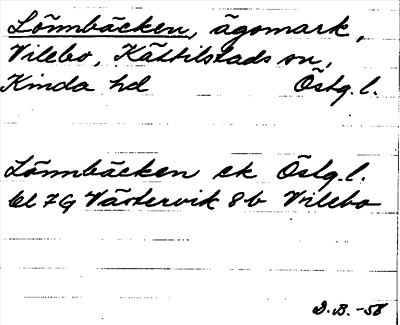 Lönnbäcken, ägomark,
Vilebo, Kättilstads sn,
Kinda hd Östg.l.
Lönnbäcken ek Östg.l.
bl 7G Västervik 8b Vilebo
D.B.-58